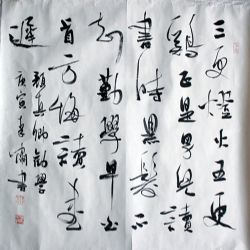 三更燈火五更
鷄正是男兒讀
書時黑髮不
知勤學早白
首方悔讀書
遲
顏真卿勸學
庚寅春書